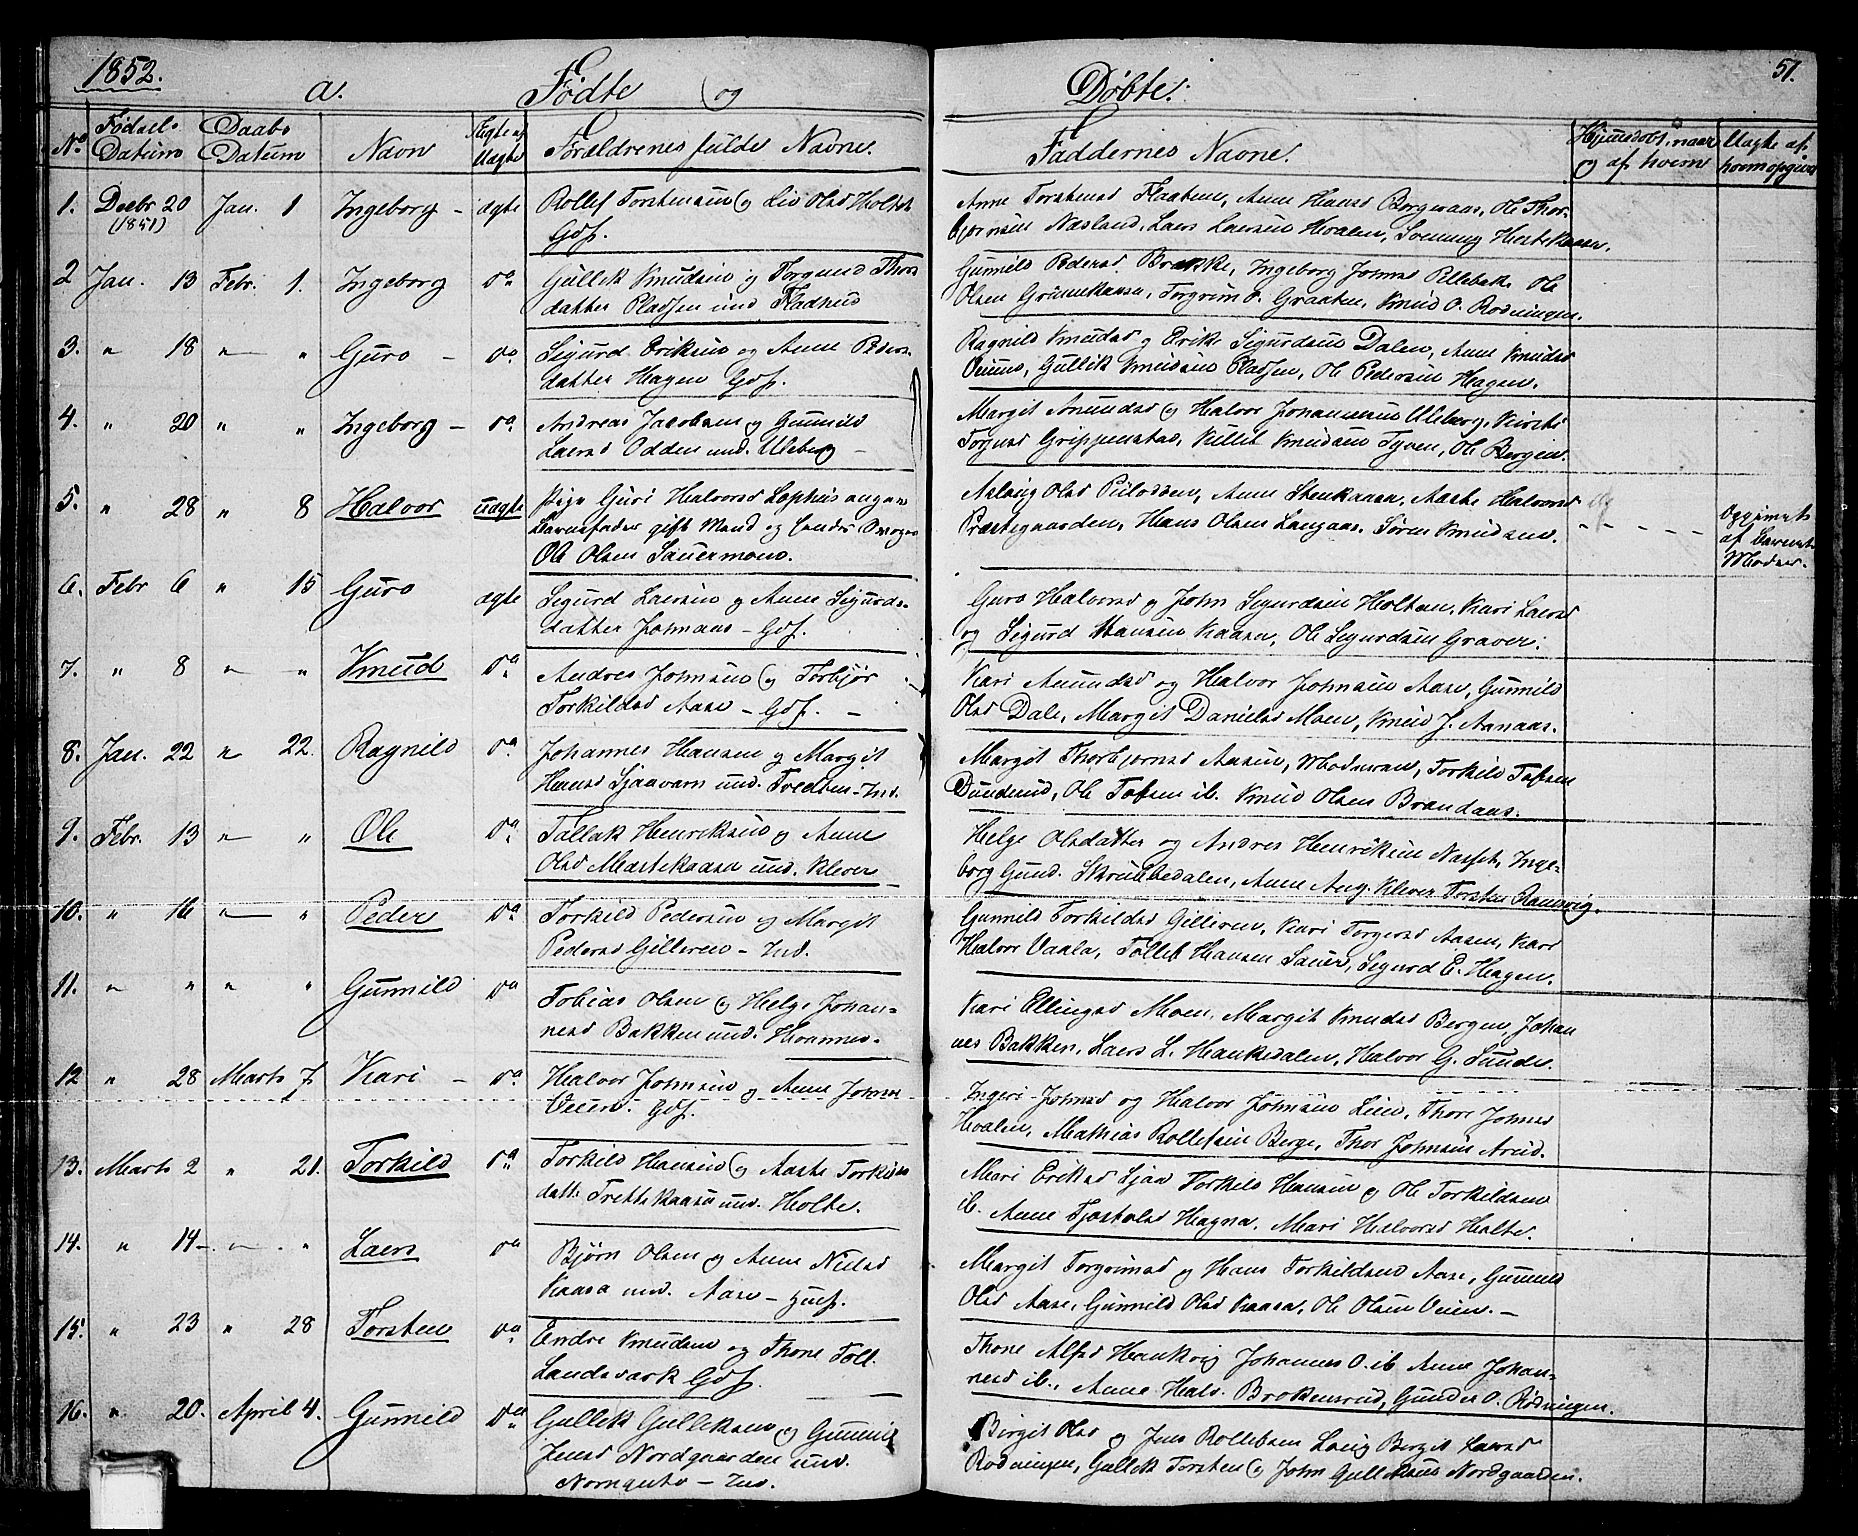 1852.
a. Fødte og Døbte.
51.
No Fødsels Datum Daabs Datum Navn Ægte el. Uægte Forældrenes fulde Navne. Faddernes Navne. Hjemmedøbt, naar og af hvem Uægte af hvem opgiven
1. Decbr 20 (1851) Jan. 1 Ingeborg - ægte Rollef Torstensen og Liv Olsd Holtet
Gdf.
Anne Torstensd Flaaten, Anne Hansd Borgeraas, Ole Thor-
bjørnsen Næsland, Laers Laersen Hvalen, Svenung Hestekaasa.
2 Jan. 13 Febr. 1. Ingeborg do Gullik Knudsen og Torgund Thors
datter Pladsen und Fladhus
Gunnild Pedersd Brække, Ingeborg Johnsd Ellebek, Ole
Olsen Grønnekaasa, Torgrim O. Graaten, Knud O. Rodningen.
3. " 18 " " Guro - do Sigurd Eriksen og Anne Peders
datter Hagen Gdf.
Ragnild Knudsd og Erik Sigurdsen Dalen, Anne Knudsd
Gullik Knudsen Pladsen, Ole Pedersen Hagen.
4. " 20 " " Ingeborg - do Andreas Jacobsen og Gunnild
Laersd Odden und. Uleberg -
Margit Anundsd og Halvor Johannesen Uleberg, Kirsti
Torgersd Grippenstad, Kittil Knudsen Tyven, Ole Bergen.
5. " 28 " 8 Halvor uægte Pige Guri Halvorsd Lophus angav
Barnefader gift Mand og
Ole Olsen Sauermoen.
Aslaug Olsd Piilodden, Anne Stenkaasa, Aaste Halvorsd
Præstegaarden, Hans Olsen Langaas, Søren Knudsen.
Opgivet
af Barnets
Moder.
6. Febr 6 " 15 Guro ægte Sigurd Laersen og Anne Sigurds-
datter Johnaas - Gdf.
Guro Halvorsd og John Sigurdsen Holtan, Kari Laersd
og Sigurd Hansen Kaasa, Ole Sigurdsen Graver.
7. " 8 " " Knud do Andres Johnsen og Torbjør
Torkildsd Aase - Gdf. -
Kari Amundsd og Halvor Johnsen Aase, Gunnild
Olsd Dale, Margit Danielsd Moen, Knud J. Aanaas.
8. Jan. 22 " 22. Ragnild do Johannes Hansen og Margit
Hansd Sjaavarn und. Tvedten - Ind.
Margit Thorbjørnsd Aasen, Moderen, Torkild Tofsen
Dunderud, Ole Tofsen ib. Knud Olsen Brandaas.
9. Febr. 13 " " Ole do Tallak Henriksen og Anne
Olsd Martekaasa und. Klever
Helge Olsdatter og Andres Henriksen Næsset, Inge-
borg Gund. Skrubbedalen, Anne Aug. Klever Torsten Ramsvig.
10. " 16 " " Peder do Torkild Pedersen og Margit
Pedersd Gilleren - Ind.
Gunnild Torkildsd Gilleren, Kari Torgersd Aasen, Kari
Halvor Vaala, Tollef Hansen Sauer, Sigurd E. Hagen.
11. " " " " Gunnild do Tobias Olsen og Helge Johan-
nesd Bakken und. Hvannes.
Kari Ellingsd Moen, Margit Knudsd Bergen, Johan
nes Bakken, Laers L. Haukedalen, Halvor G. Sunde.
12 " 28 Marts 7 Kari - do Halvor Johnsen og Anne Johnsd
Veien. Gdf.
Ingeri Johnsd og Halvor Johnsen Lien, Thore Johnsd
Hvalen, Mathias Rollefsen Berge, Thor Johnsen Arud.
13. Marts 2 " 21. Torkild do Torkild Hansen og Aaste Torkilds
datter Trettekaasa und. Holte.
Mari Eriksd Ljaa Torkild Hansen og Ole Torkildsen
ib. Anne Tjostolsd Hagna, Mari Halvorsd Holte.
14. " 14 - " " Laers do Bjørn Olsen og Anne Nielsd
Kaasa und. Aase - Husf.
Margit Torgrimsd og Hans Torkildsen Aase, Gunnild
Olsd Aase, Gunnild Olsd Kaasa, Ole Olsen Veien. -
15. " 23 " 28 Torsten do Endre Knudsen og Thone Toll.
Landsværk Gdf.
Thone Alfsd Haukvig Johannes O. ib Anne Johan-
nesd ib., Anne Halv. Brokensrud, Gunder O. Rødningen.
16. " 20. April 4. Gunnild do Gullik Gulliksen og Gunnild
Jensd Nordgaarden und.
Nornquto - Ind.
Birgit Olsd og Jens Rollefsen Langs Bergit Laersd
Rodningen, Gullik Torsten og John Gulliksens Nordgaarden.